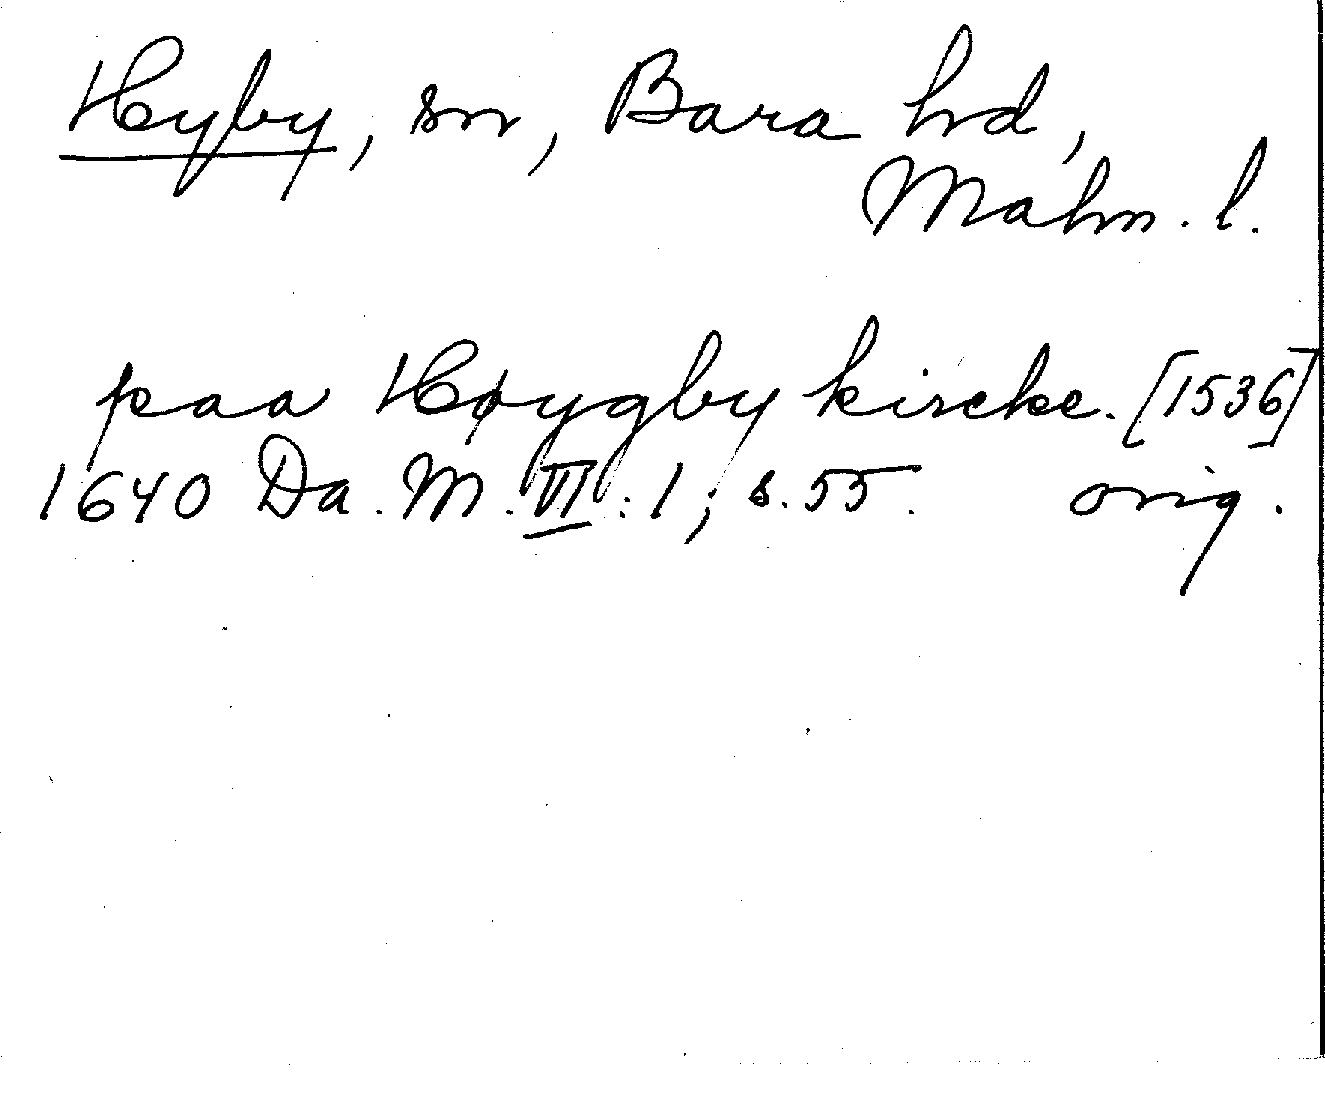 Hyby, sn, Bara hd,
Malm. l.
paa Høygby kircke. [1536]
1640 Da. M. VI: 1, s. 55. orig.